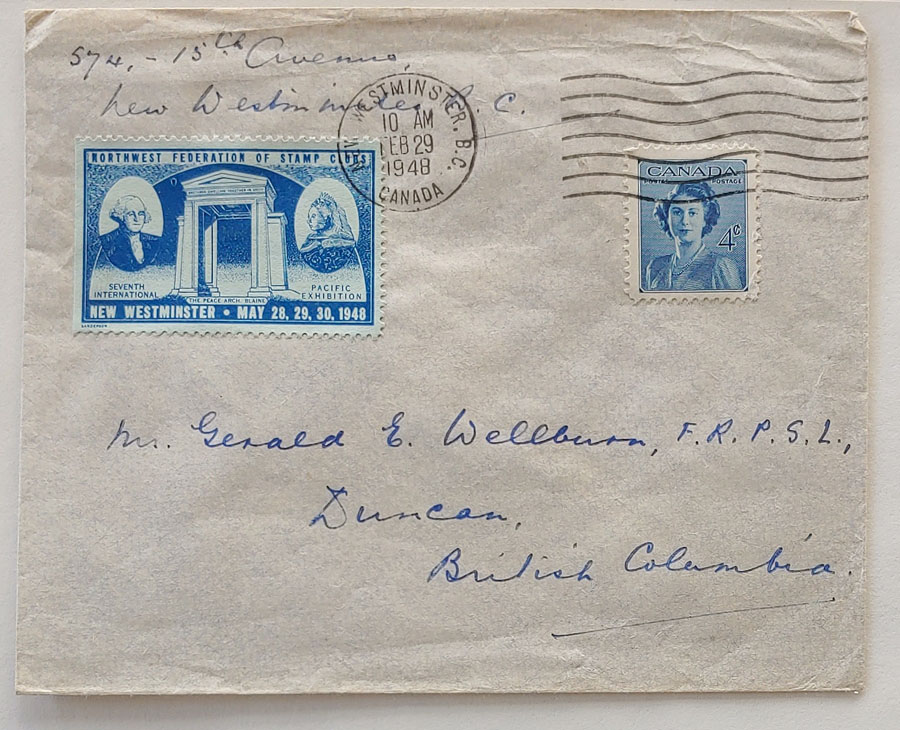 574, - 15th Avenue,
New Westminster, B.C.
NEW WESTMINSTER, B.C.
10 AM
FEB 29
1948
CANADA
NORTHWEST FEDERATION OF STAMP CLUBS
SEVENTH
INTERNATIONAL
PACIFIC
EXHIBITION
THE PEACE ARCH, BLAINE
NEW WESTMINSTER • MAY 28, 29, 30, 1948
CANADA
POSTES POSTAGE
4¢
Mr. Gerald E. Wellburn, F.R.P.S.L.,
Duncan,
British Columbia.